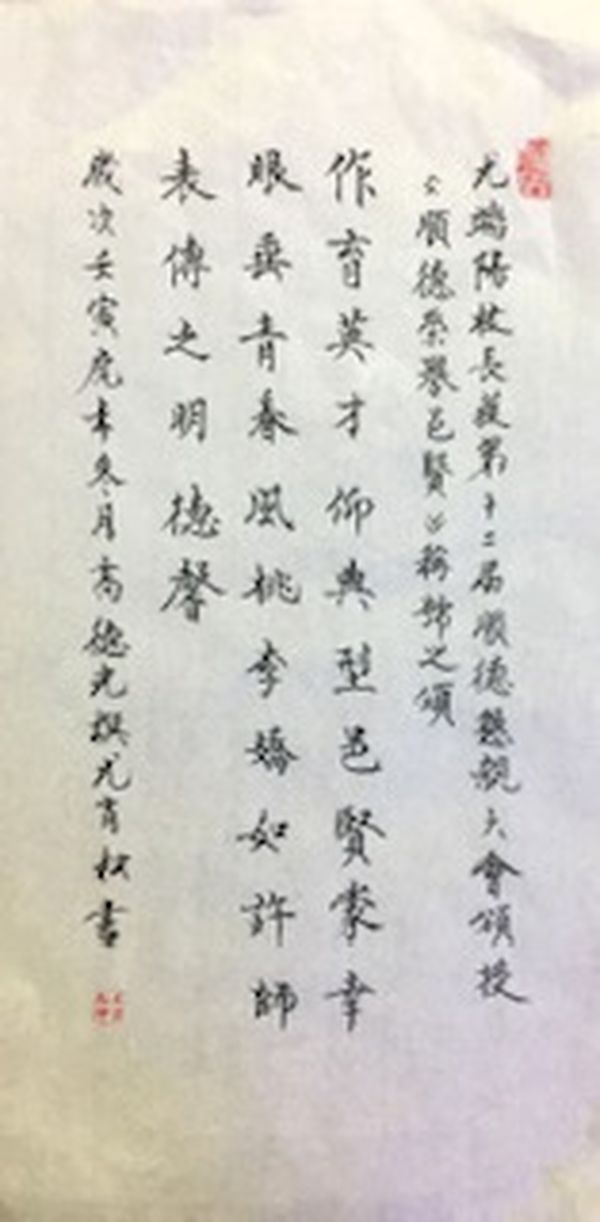 尤端陽校長獲第十二屆順德懇親大會頒授
順德榮譽邑賢 稱號之頌
作育英才仰典型邑賢蒙幸
眼垂青春風桃李嬌如許師
表傳之明德馨
歲次壬寅虎年冬月高德光撰尤育松書